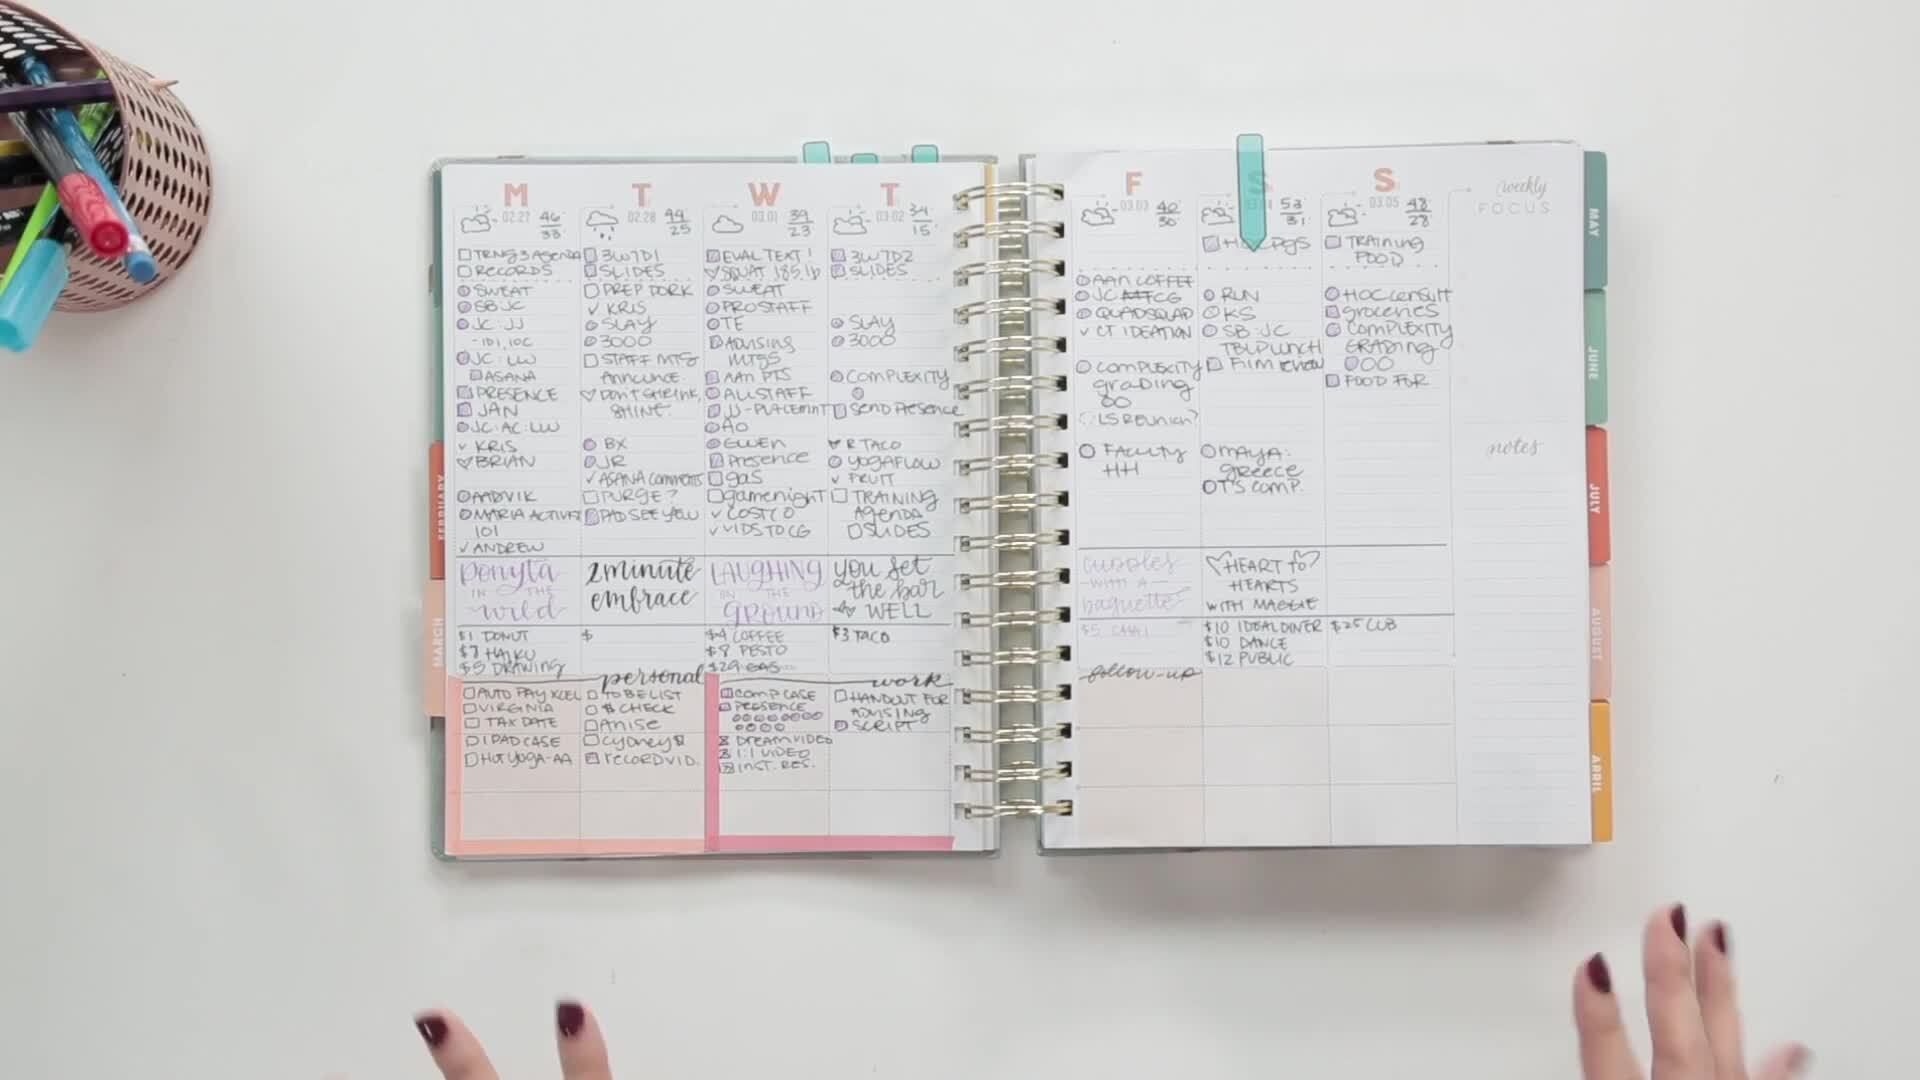 M
02.27
46
33
TRNG 3 AGENDA
RECORDS
SWEAT
SB:JC
JC:JJ
-101, 10C
JC:LW
ASANA
PRESENCE
JAN
JC:AC:LW
KRIS
BRIAN
AADVIK
MARIA ACTIVIST
101
ANDREW
ponyta
IN THE
wild
$1 DONUT
$7 HAIKU
$5 DRAWING
T
02.28
44
25
3W7D1
SLIDES
PREP DORK
KRIS
SLAY
3000
STAFF MTG
ANNOUNCE
DON'T SHRINK,
SHINE.
BX
JR
ASANA COMMENTS
PURGE?
PAD SEE YEW
2 minute
embrace
$
W
03.01
39
23
EVAL TEXT!
SQUAT 185 lb
SWEAT
PROSTAFF
TE
ADVISING
MTGS
AAn PTS
ALLSTAFF
JJ-PLACEMNT
AO
GWEN
Presence
gas
gamenight
COSTCO
VIDS TO CG
LAUGHING
ON THE
GROUND
$4 COFFEE
$8 PESTO
$29 GAS
T
03.02
34
15
3W7D2
SLIDES
SLAY
3000
COMPLEXITY
SEND Presence
R TACO
YOGAFLOW
FRUIT
TRAINING
AGENDA
SLIDES
you set
the bar
WELL
$3 TACO
personal
AUTO PAY XCEL
VIRGINIA
TAX DATE
IPAD CASE
HOT YOGA-AA
TO BE LIST
$ CHECK
Anise
cydney
record VID.
work
COMP CASE
PRESENCE
DREAM VIDEO
1:1 VIDEO
INST. RES.
HANDOUT FOR
ADVISING
SCRIPT
F
03.03
40
30
AAn COFFEE
JC MT CG
QUADSQUAD
CT IDEATION
COMPLEXITY
grading
LS REUNION?
FACULTY
HH
cuddles
WITH A
baguette
follow-up
S
53
31
RUN
KS
SB:JC
TBLP LUNCH
FILM
MAYA:
greece
T'S COMP.
HEART TO
HEARTS
WITH MAGGIE
$10 IDEAL DINER
$10 DANCE
$12 PUBLIC
S
03.05
48
28
TRAINING
FOOD
HOC CONSULT
groceries
COMPLEXITY
GRADING
FOOD FOR
$25 CUB
weekly
FOCUS
notes
FEBRUARY
MARCH
MAY
JUNE
JULY
AUGUST
APRIL